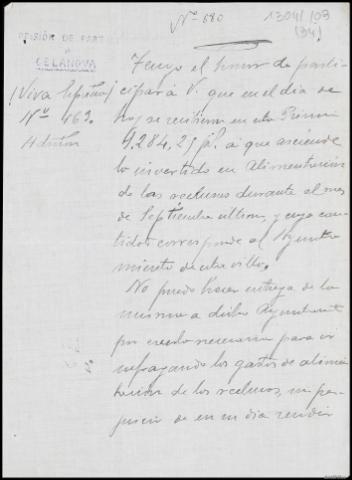 Nº 680
1304/03
(34)
PRISIÓN DE PARTIDO
CELANOVA
¡Viva España!
Nº 469.
Admón
Tengo el honor de parti-
cipar á V. que en el día de
hoy se recibieron en esta Prisión
4.284,25 pts. a que asciende
lo invertido en alimentación
de los reclusos durante el mes
de Septiembre último, y cuya can-
tidad corresponde al Ayunta
miento de esta villa.
No puedo hacer entrega de la
misma a dicho Ayuntamiento
por creerlo necesario para ir
sufragando los gastos de alimen
tación de los reclusos, sin per-
juicio de en su día rendir